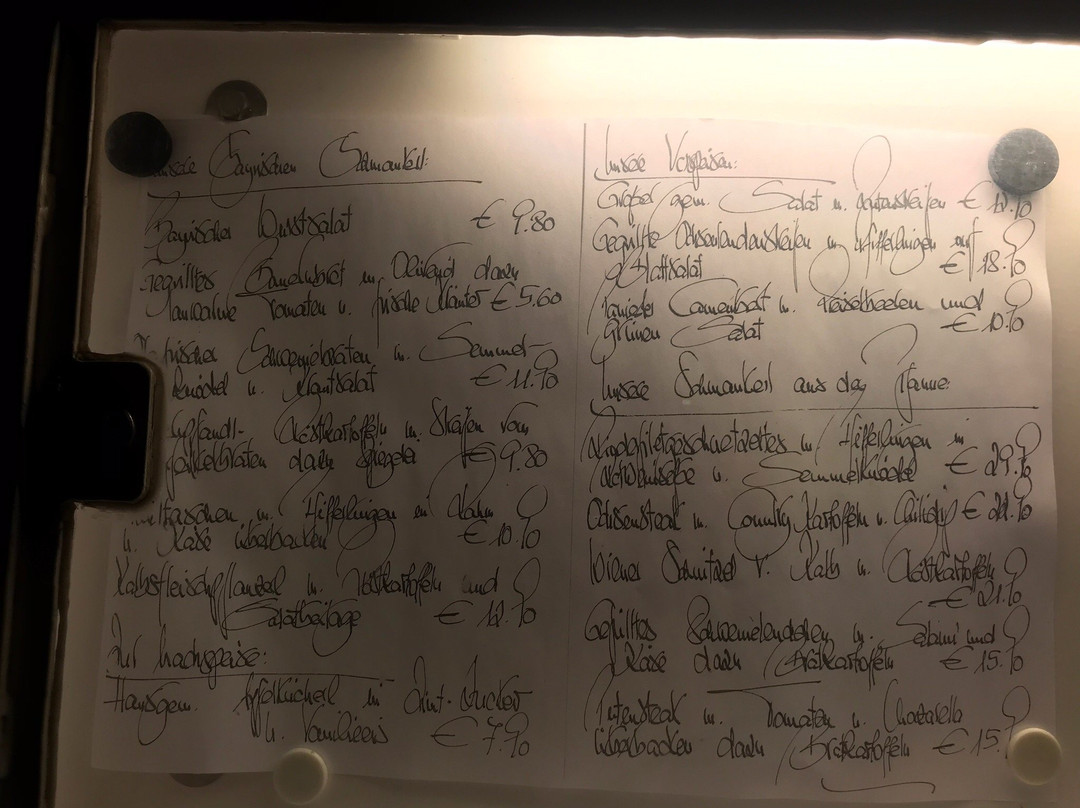 Unsere Bayrischen Schmankerl:
Bayrischer Wurstsalat € 9.80
Gegrilltes Camembert m. Olivenöl dazu
Tomaten u. frische Kräuter € 5.60
frischer Schweinebraten m. Semmel-
knödel u. Krautsalat € 11.90
Röstkartoffeln m. Streifen vom
dazu Spiegelei € 9.80
m. Pfifferlingen in Rahm
u. Käse überbacken € 10.90
Kalbsfleischpflanzerl m. Röstkartoffeln und
Salatbeilage € 12.90
Zur Nachspeise:
Hausgem. Apfelkücherl m. Zimt-Zucker
u. Vanilleeis € 7.90
Unsere Vorspeisen:
Großer gem. Salat m. Putenstreifen
Gegrillte Ochsenlendenstreifen m. Pfifferlingen auf
Blattsalat € 18.90
Panierter Camembert m. Preiselbeeren und
Grünen Salat € 10.90
Unsere Schmankerl aus der Pfanne:
Rinderfiletgeschnetzeltes m. Pfifferlingen in
u. Semmelknödel € 29.90
Ochsensteak m. Country Kartoffeln u. Chilidip
Wiener Schnitzel v. Kalb m. Röstkartoffeln
€ 21.90
Gefülltes Schweinelendchen m. Salami und
Käse dazu Bratkartoffeln € 15.90
Putensteak m. Tomaten u. Mozzarella
überbacken dazu Bratkartoffeln